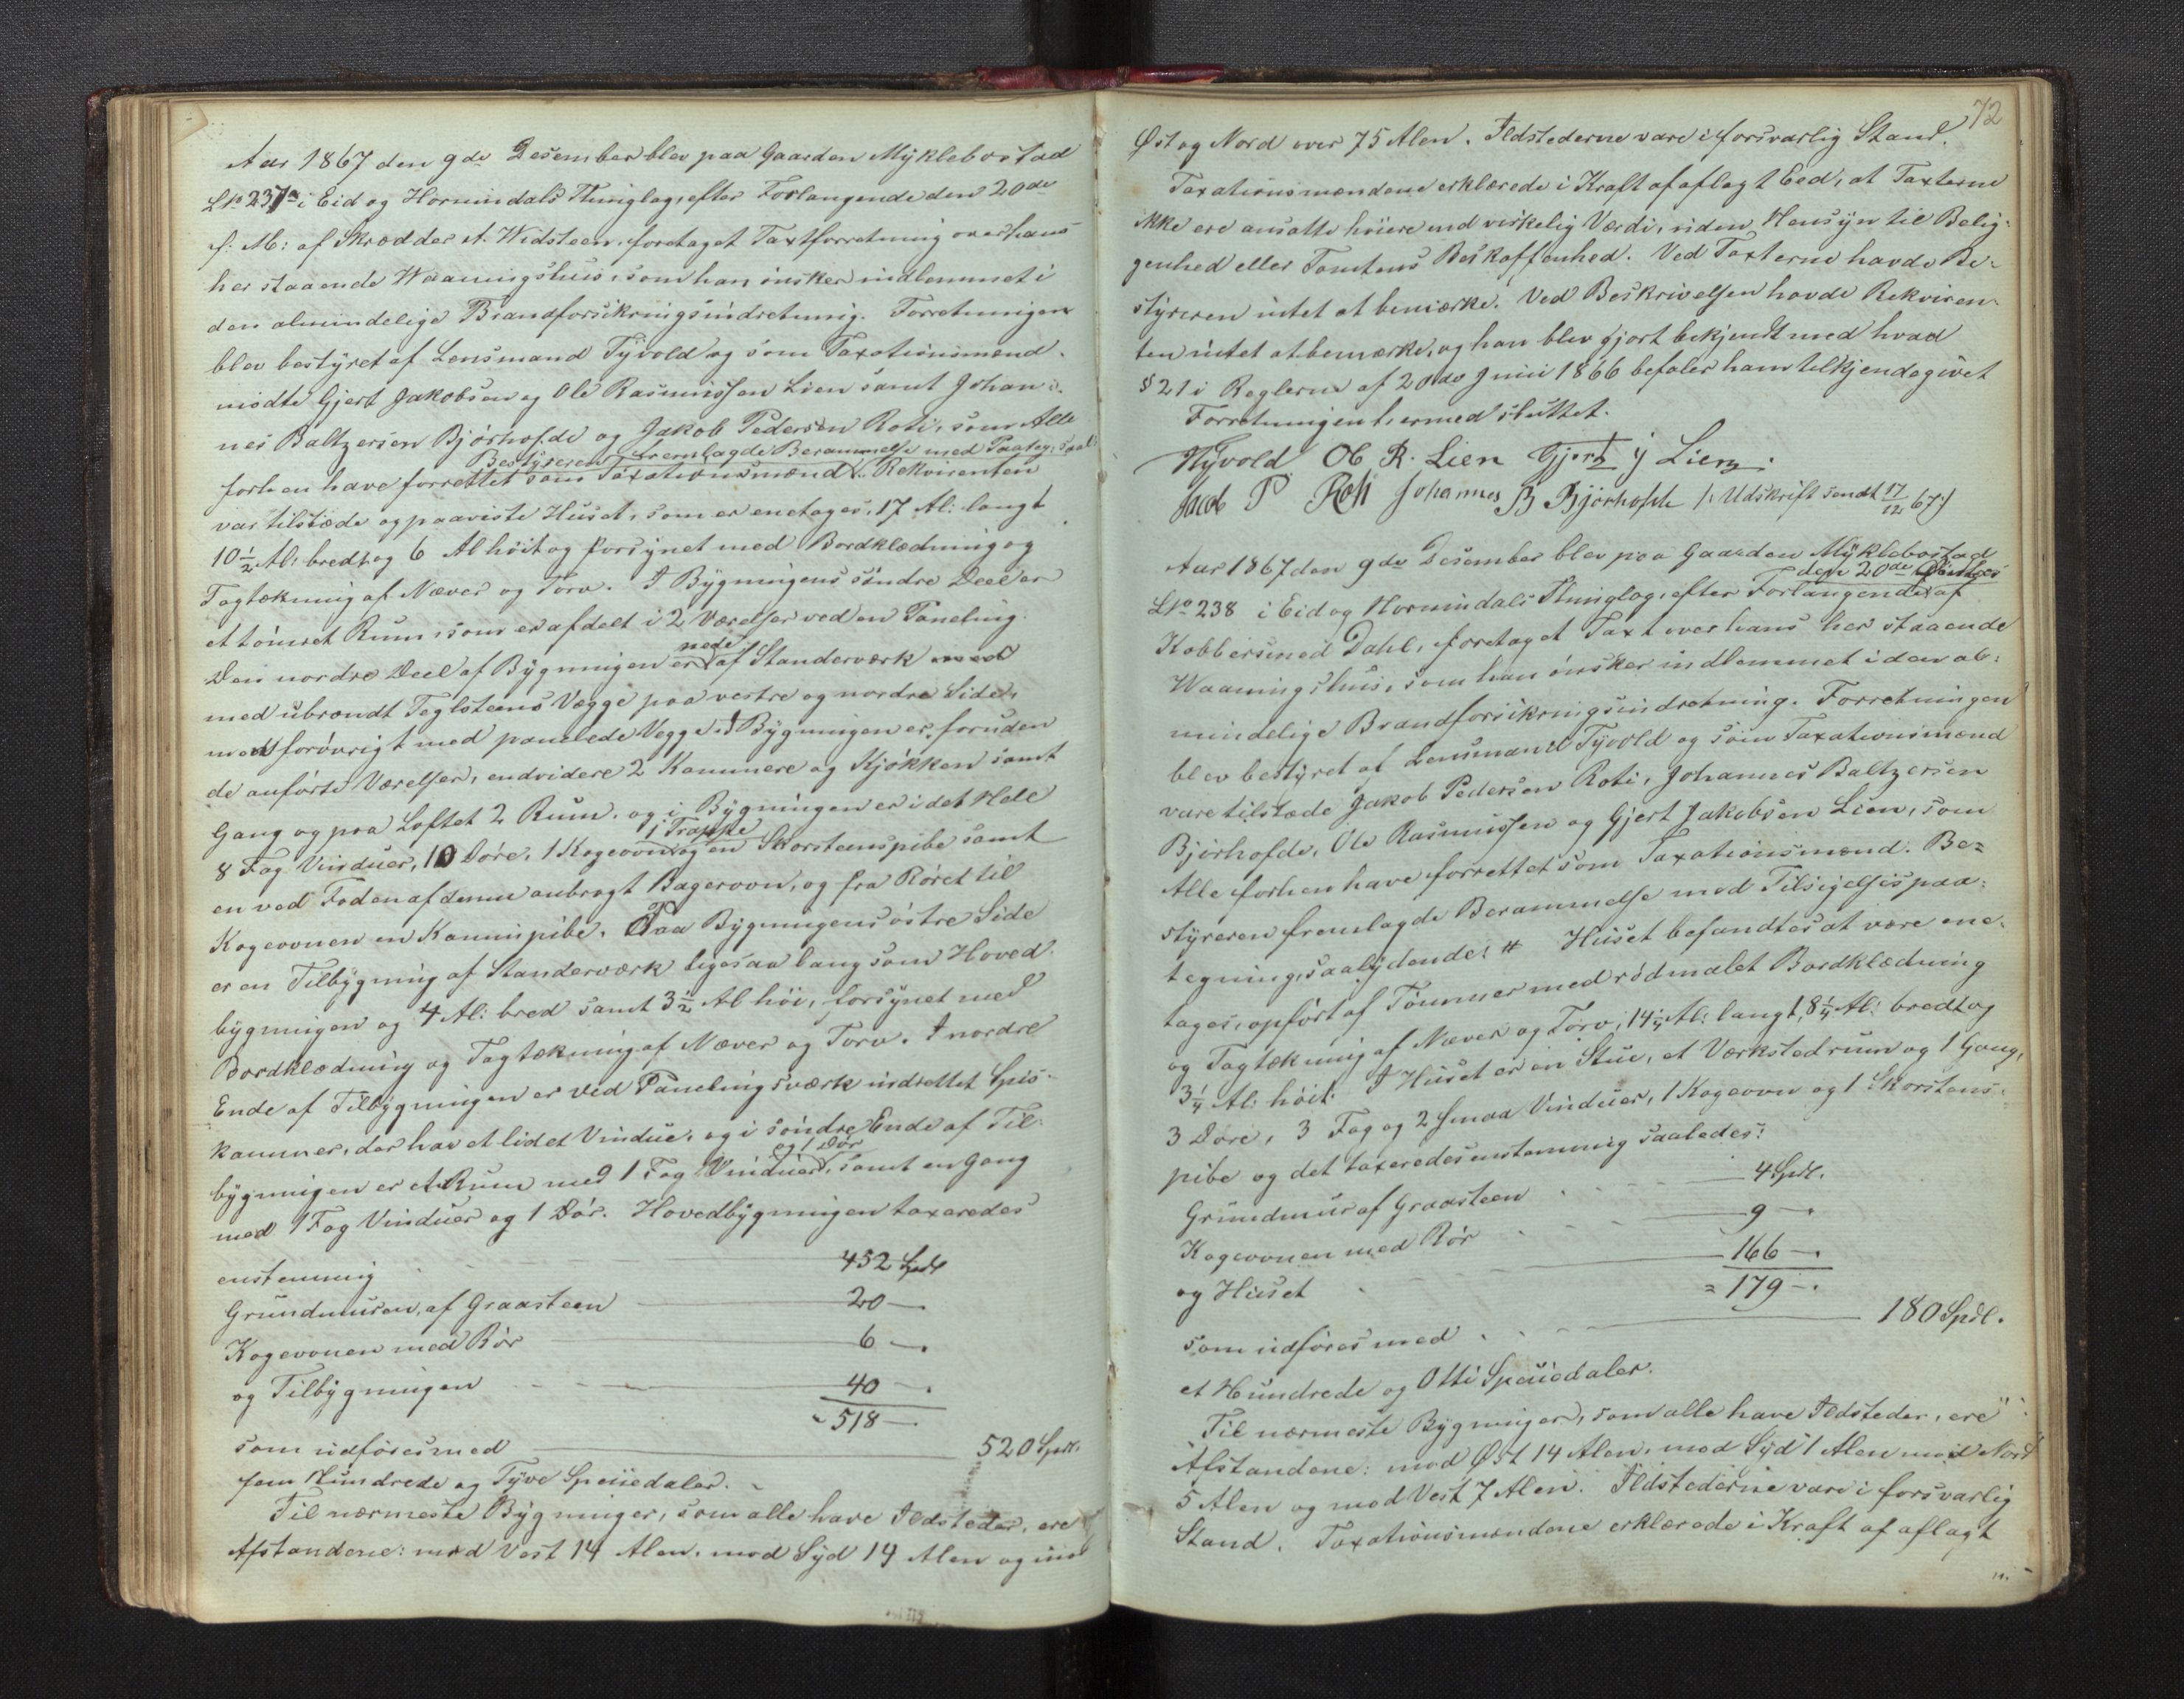 Aar 1867 den 9de Desember blev paa Gaarden Myklebostad
LNo 237a i Eid og Hornindals Thinglag, efter Forlangende den 20de
f: M: af Skrædder A. Widsteen, foretaget Taxtforretning over hans
her staaende Waaningshus, som han ønsker indlemmet i
den almindelige Brandforsikringsindretning. Forretningen
blev bestyret af Lensmand Tyvold og som Taxationsmænd
mødte Gjert Jakobsen og Ole Rasmussen Lien samt Johan-
nes Baltzersen Bjørhofde og Jakob Pedersen Roti, som Alle
Bestyreren fremlagde Berammelse med Paateg: saal:
forhen have forrettet som Taxationsmænd. Rekvirenten
var tilstæde og paaviste Huset, som er enetages, 17 Al: langt
10 1/2 Al: bredt og 6 Al høit og forsynet med Bordklædning og
Tagtækning af Næver og Torv. I Bygningens søndre Deel er
et tømret Rum, som er afdelt i 2 Værelser ved en Paneling.
nede
Den nordre Deel af Bygningen er af Standerværk med
med ubrændt Teglsteens Vægge paa vestre og nordre Side,
med forøvrigt med panelede Vegge. I Bygningen er, foruden
de anførte Værelser, endvidere 2 Kammere og Kjøkken samt
Gang og paa Loftet 2 Rum. og i Bygningen er i det Hele
1 Trappe
8 Fag Vinduer, 10 Døre, 1 Kogeovn og en Skorsteenspibe samt
en ved Foden af denne anbragt Bagerovn, og fra Røret til
Kogeovnen en Kaminpibe. Paa Bygningens østre Side
er en Tilbygning af Standerværk ligesaa lang som Hoved-
bygningen og 4 Al: bred samt 3 1/2 Al høi, forsynet med
Bordklædning og Tagtækning af Næver og Torv. I nordre
Ende af Tilbygningen er ved Panelingsværk indrettet Spis-
kammer, der har et lidet Vindue, og i søndre Ende af Til-
og 1 Dør
bygningen er et Rum med 1 Fag Vinduer, samt en Gang
med 1 Fag Vinduer og 1 Dør. Hovedbygningen taxeredes
enstemmig 452 Spdl
Grundmuren, af Graasteen 20 —
Kogeovnen med Rør 6 —
og Tilbygningen 40 —
518 —
som udføres med 520 Spdl.
fem Hundrede og Tyve Speciedaler.
Til nærmeste Bygninger, som alle have Ildsteder, ere
Afstandene: mod Vest 14 Alen, mod Syd 14 Alen og mod
72
Øst og Nord over 75 Alen. Ildstederne vare i forsvarlig Stand.
Taxationsmændene erklærede i Kraft af aflagt Eed, at Taxterne
ikke ere ansatte høiere end virkelig Værdi, uden Hensyn til Belig-
genhed eller Tomtens Beskaffenhed. Ved Taxterne havde Be-
styreren intet at bemærke. Ved Beskrivelsen havde Rekviren-
ten intet at bemærke, og han blev gjort bekjendt med hvad
§ 21 i Reglerne af 20de Juni 1866 befaler ham tilkjendegivet
Forretningen hermed sluttet.
HTyvold Ol R. Lien Gjert J Lien
Jacob P Roti Johannes B Bjørhofde /: Udskrift sendt 17/12 67:/
Aar 1867 den 9de Desember blev paa Gaarden Myklebostad
den 20de
LNo 238 i Eid og Hornindals Thinglag, efter Forlangende af
Kobbersmed Dahl, foretaget Taxt over hans her staaende
Waaningshus, som han ønsker indlemmet i den al-
mindelige Brandforsikringsindretning. Forretningen
blev bestyret af Lensmand Tyvold og som Taxationsmænd
vare tilstæde Jakob Pedersen Roti, Johannes Baltzersen
Bjørhofde, Ole Rasmussen og Gjert Jakobsen Lien, som
Alle forhen have forrettet som Taxationsmænd. Be-
styreren fremlagde Berammelse med Tilsigelsespaa-
tegning, saalydende: # Huset befandtes at være ene-
tages, opført af Tømmer med rødmalet Bordklædning
og Tagtækning af Næver og Torv, 14 1/4 Al: langt, 8 1/4 Al: bredt og
3 1/4 Al: høit. I Huset er en Stue, et Værkstedrum og 1 Gang,
3 Døre, 3 Fag og 2 Smaa Vinduer, 1 Kogeovn og 1 Skorstens-
pibe og det taxeredes enstemmig saaledes:
Grundmur af Graasteen 4 Spdl.
Kogeovnen med Rør 9 —
og Huset 166 —
= 179 —
som udføres med 180 Spdl.
et Hundrede og Otti Speciedaler.
Til nærmeste Bygninger, som alle have Ildsteder, ere
Afstandene: mod Øst 14 Alen, mod Syd 1 Alen mod Nord
5 Alen og mod Vest 7 Alen. Ildstederne vare i forsvarlig
Stand. Taxationsmændene erklærede i Kraft af aflagt